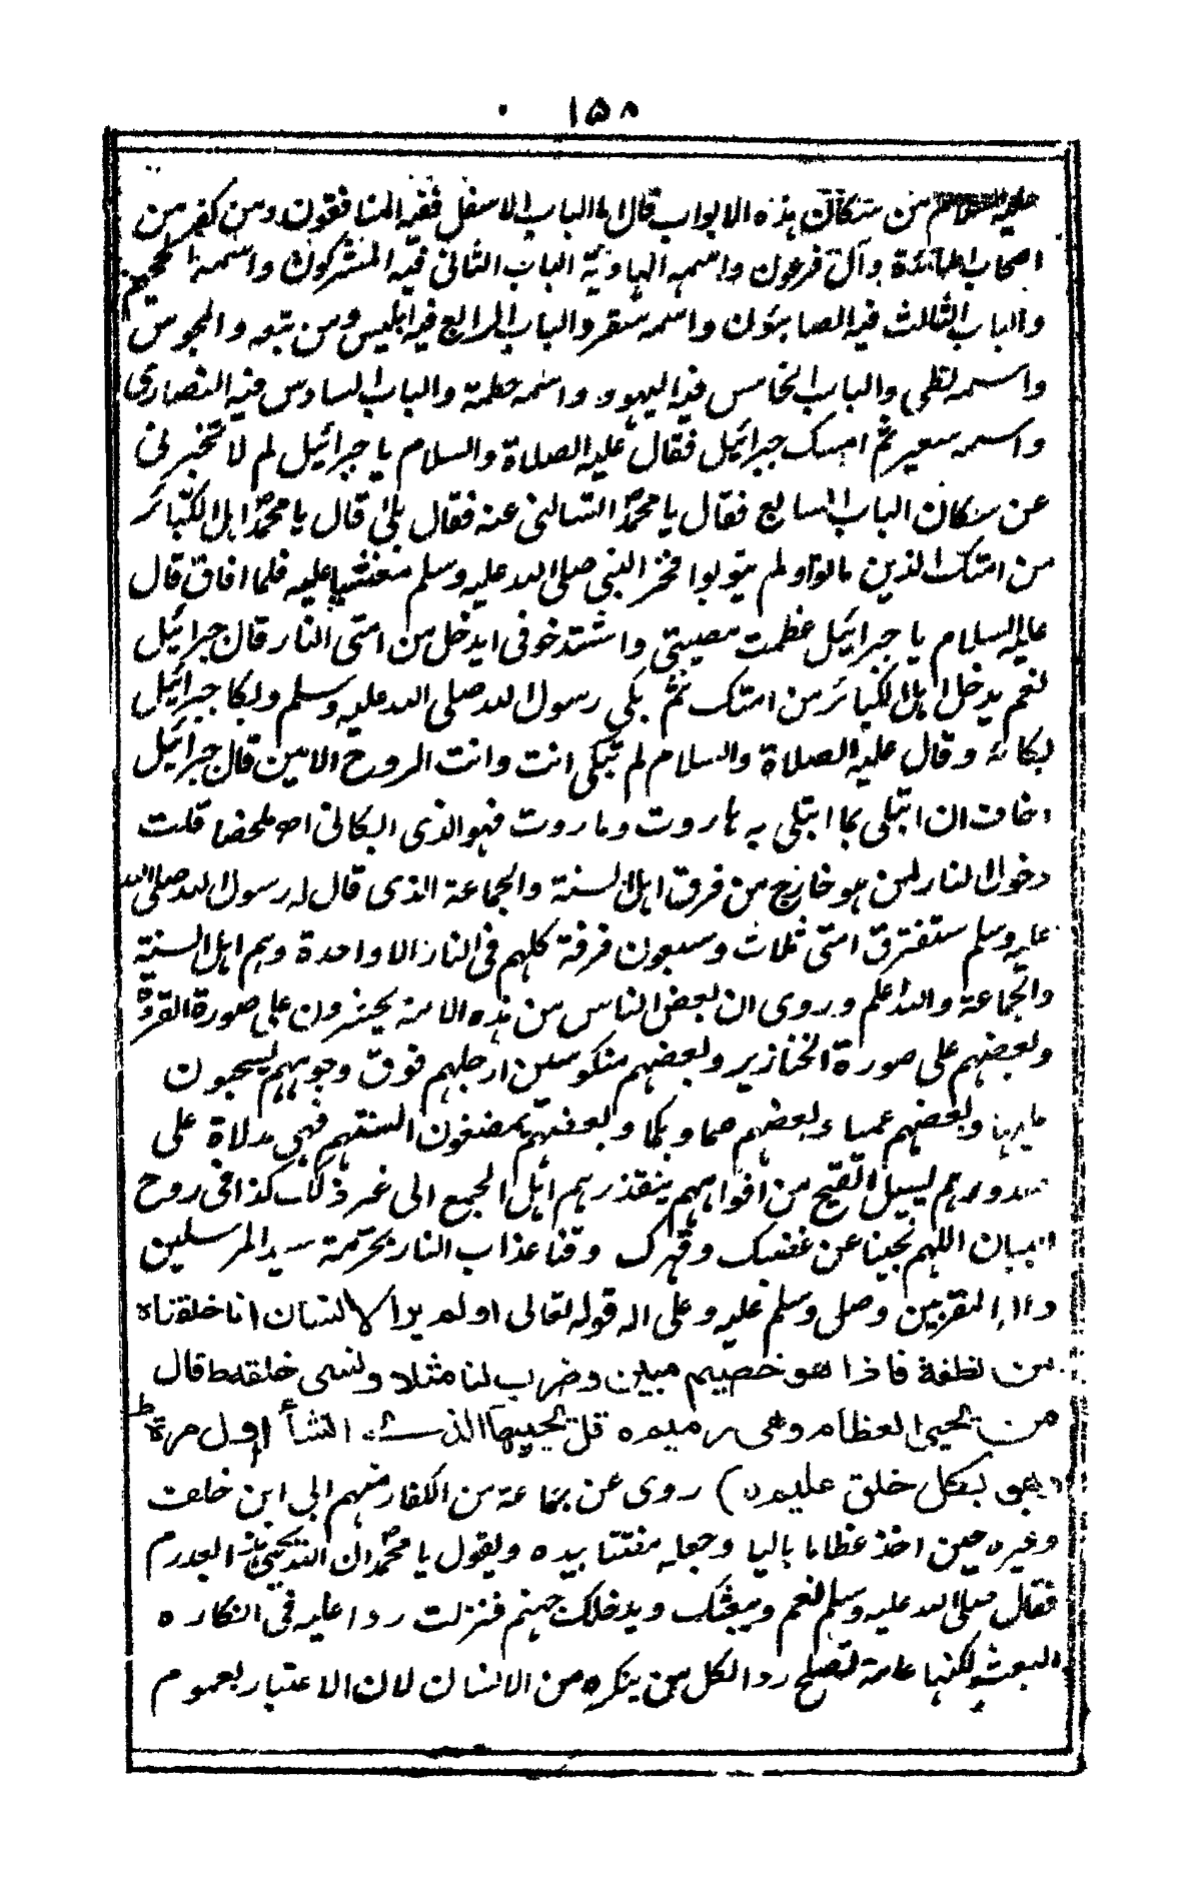 ١٥٨
عليه السلام من سكان هذه الابواب قال اما الباب الاسفل ففيه المنافقون ومن كفر من
اصحاب المائدة وآل فرعون واسمه الهاوية الباب الثانى فيه المشركون واسمه الجحيم
والباب الثالث فيه الصابئون واسمه سقر والباب الرابع فيه ابليس ومن تبعه والمجوس
واسمه لظى والباب الخامس فيه اليهود واسمه حطمة والباب السادس فيه النصارى
واسمه سعير ثم امسك جبرائيل فقال عليه الصلاة والسلام يا جبرائيل لم لا تخبرنى
عن سكان الباب السابع فقال يا محمد اتسالنى عنه فقال بلى قال يا محمد اهل الكبائر
من امتك الذين ماتوا ولم يتوبوا فخر النبى صلى الله عليه وسلم مغشيا عليه فلما افاق قال
عليه السلام يا جبرائيل عظمت مصيبتى واشتد خوفى ايدخل من امتى النار قال جبرائيل
نعم يدخل اهل الكبائر من امتك ثم بكى رسول الله صلى الله عليه وسلم وبكا جبرائيل
لبكائه وقال عليه الصلاة والسلام لم تبكى انت وانت الروح الامين قال جبرائيل
اخاف ان ابتلى بما ابتلى به هاروت وماروت فهو الذى ابكانى اه ملخصا قلت
دخول النار لمن هو خارج من فرق اهل السنة والجماعة الذى قال له رسول الله صلى الله
عليه وسلم ستفترق امتى ثلاث وسبعون فرقة كلهم فى النار الا واحدة وهم اهل السنة
والجماعة والله اعلم وروى ان بعض الناس من هذه الامة يحشرون على صورة القردة
وبعضهم على صورة الخنازير وبعضهم منكوسين ارجلهم فوق وجوههم يسحبون
عليها وبعضهم عميا وبعضهم صما وبكما وبعضهم يمضغون السنتهم فهى مدلاة على
صدورهم يسيل القيح من افواههم يتقذرهم اهل الجمع الى غير ذلك كذا فى روح
البيان اللهم نجينا عن غضبك وقهرك وقنا عذاب النار بحرمة سيد المرسلين
والا المقربين وصلى وسلم عليه وعلى اله قوله تعالى اولم ير الانسان انا خلقناه
من نطفة فاذا هو خصيم مبين وضرب لنا مثلا ونسى خلقه ط قال
من يحيى العظام وهى رميم ه قل يحييها الذى انشأ اول مرة ط
وهو بكل خلق عليم ه) روى عن جماعة من الكفار منهم ابى ابن خلف
وغيره حين اخذ عظاما باليا وجعله مفتتا بيده ويقول يا محمد ان الله يحيى هذا بعد رم
فقال صلى الله عليه وسلم نعم ويبعثك ويدخلك جهنم فنزلت ردا عليه فى انكاره
البعث لكنها عامة تصلح ردا لكل من ينكره من الانسان لان الاعتبار بعموم